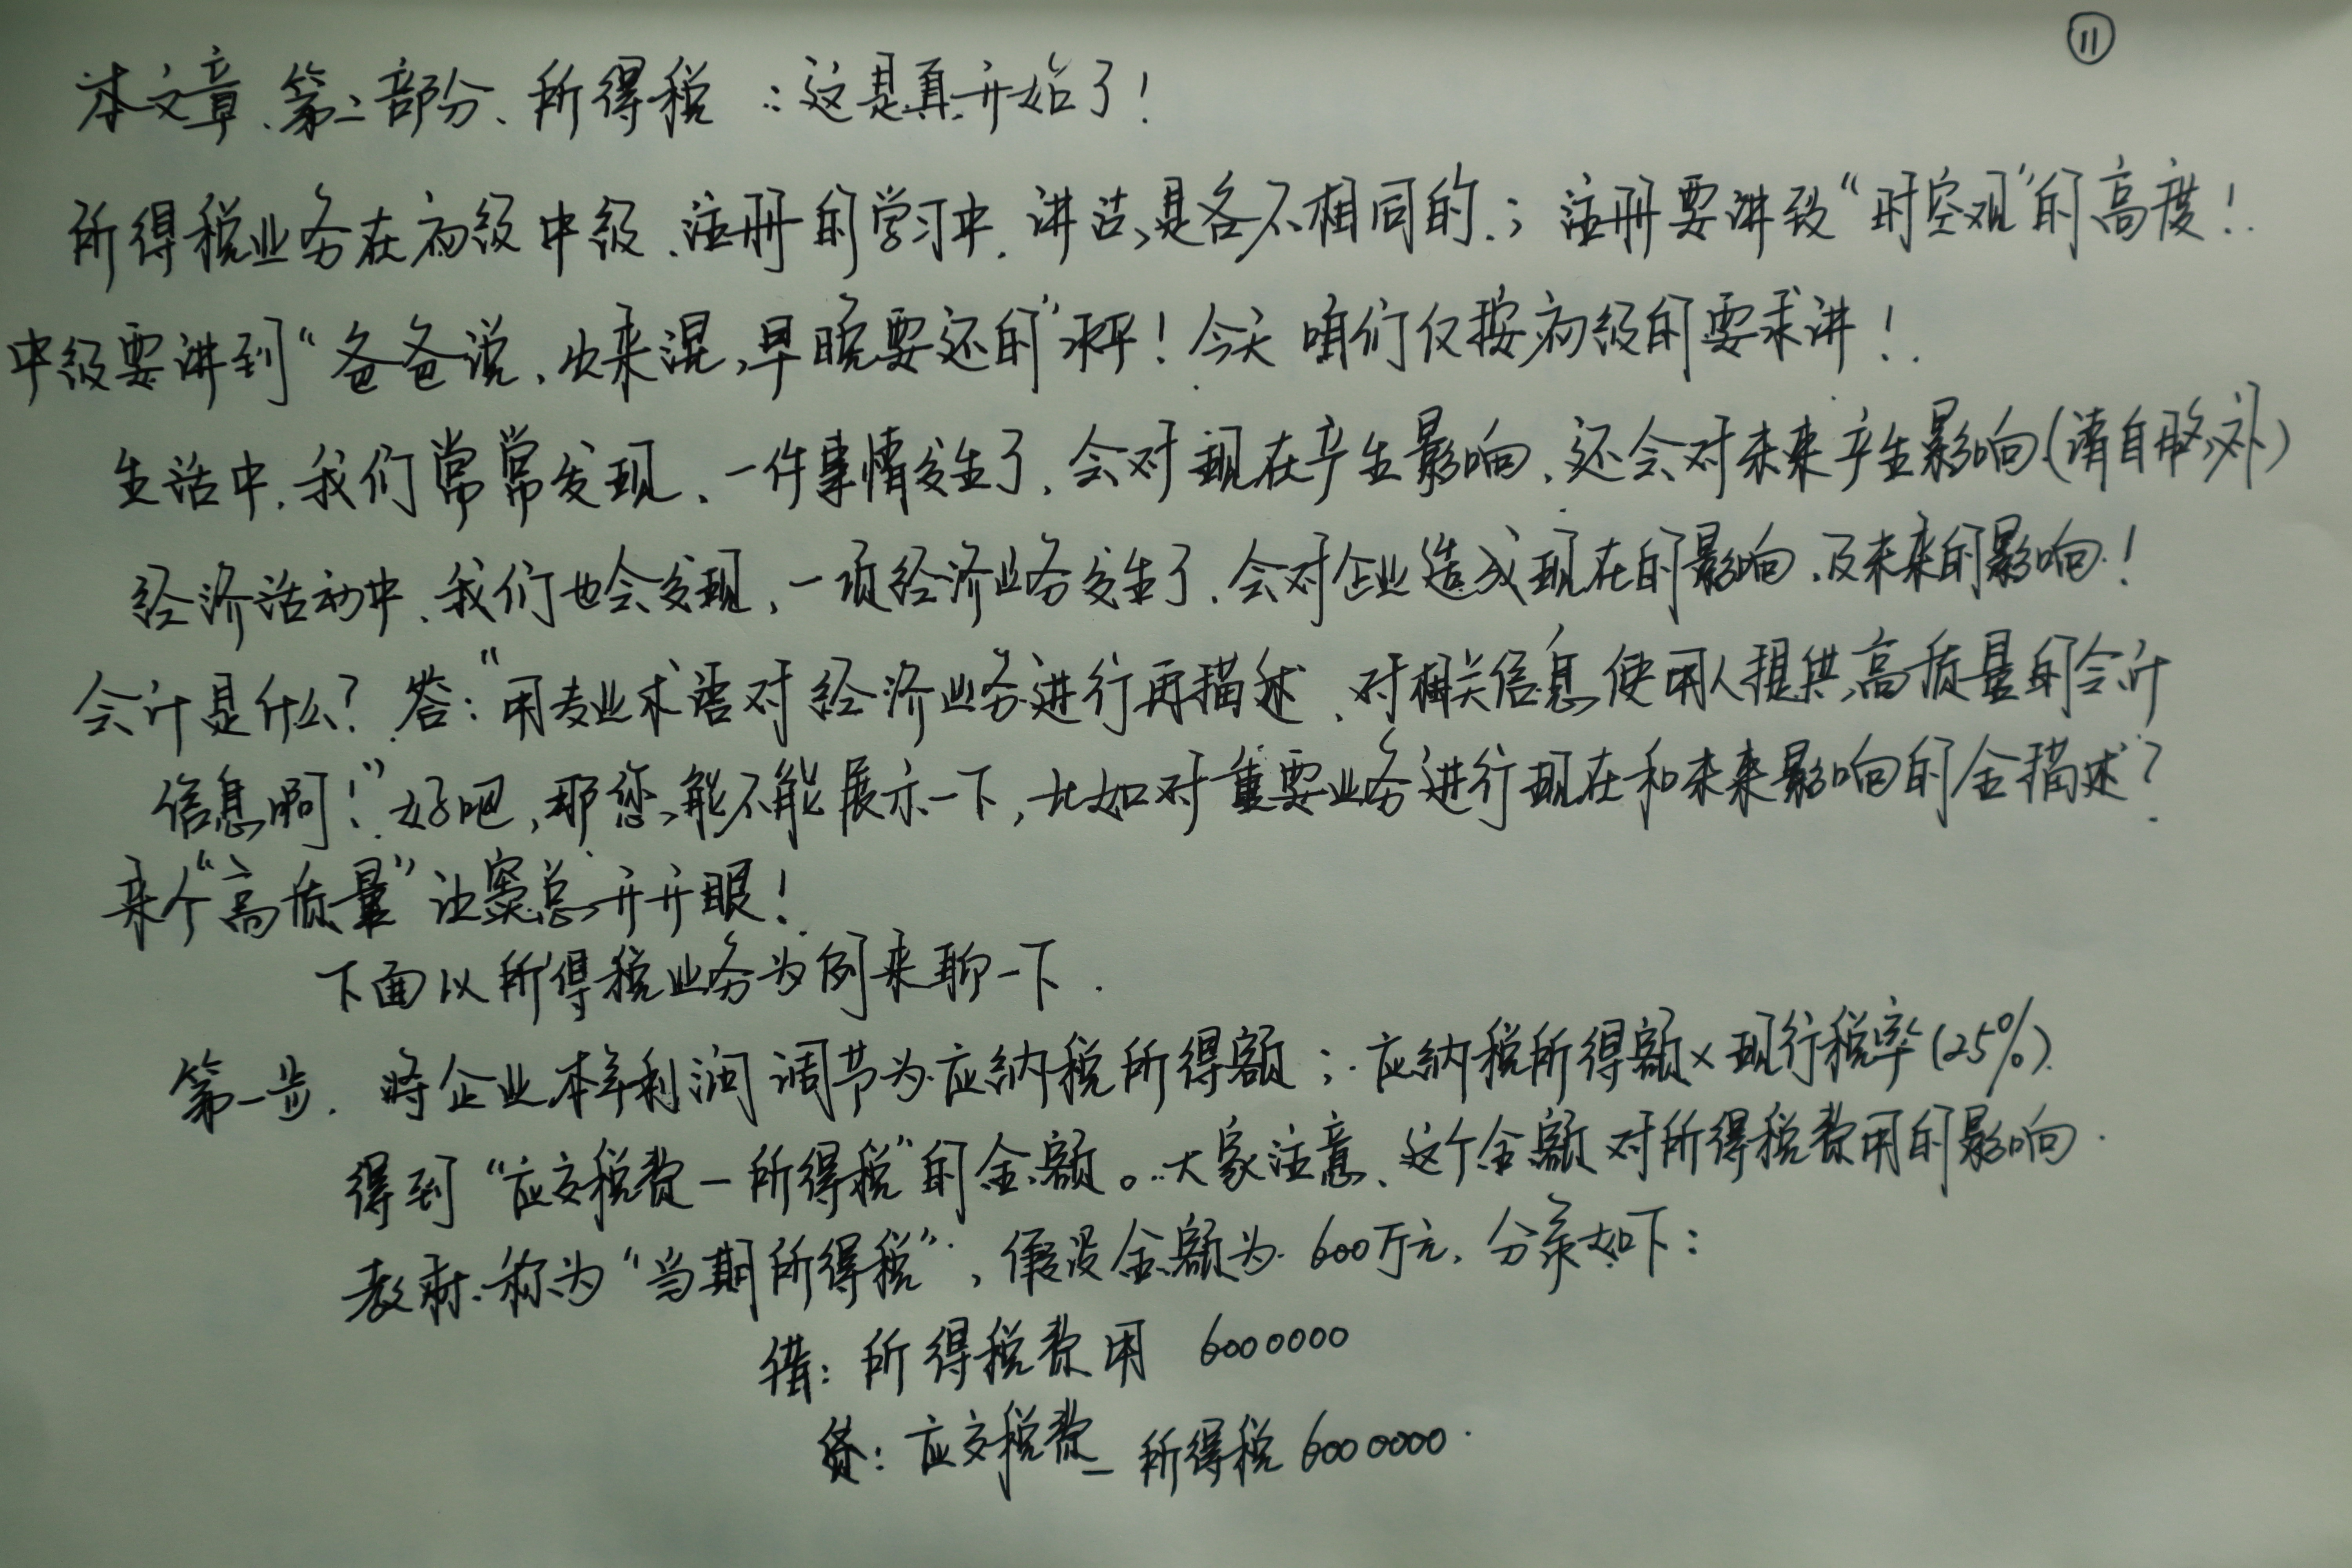 ⑪
本文章、第二部分、所得税:这是真开始了!
所得税业务在初级中级、注册的学习中,讲法是各不相同的;注册要讲致“时空观”的高度!
中级要讲到“爸爸说,出来混,早晚要还的”水平!今天咱们仅按初级的要求讲!
生活中,我们常常发现,一件事情发生了,会对现在产生影响,还会对未来产生影响(请自形象补)
经济活动中,我们也会发现,一项经济业务发生了,会对企业造成现在的影响,及未来的影响!
会计是什么?答:“用专业术语对经济业务进行再描述,对相关信息使用人提供高质量的会计
信息啊!”好吧,那您能不能展示一下,比如对重要业务进行现在和未来影响的全描述?
来个“高质量”让窦总开开眼!
下面以所得税业务为例来聊一下.
第一步,将企业本年利润调节为应纳税所得额;应纳税所得额×现行税率(25%)
得到“应交税费—所得税”的金额。大家注意、这个金额对所得税费用的影响.
教材称为“当期所得税”,假设金额为600万元,分录如下:
借:所得税费用 6000000
贷:应交税费—所得税 6000000